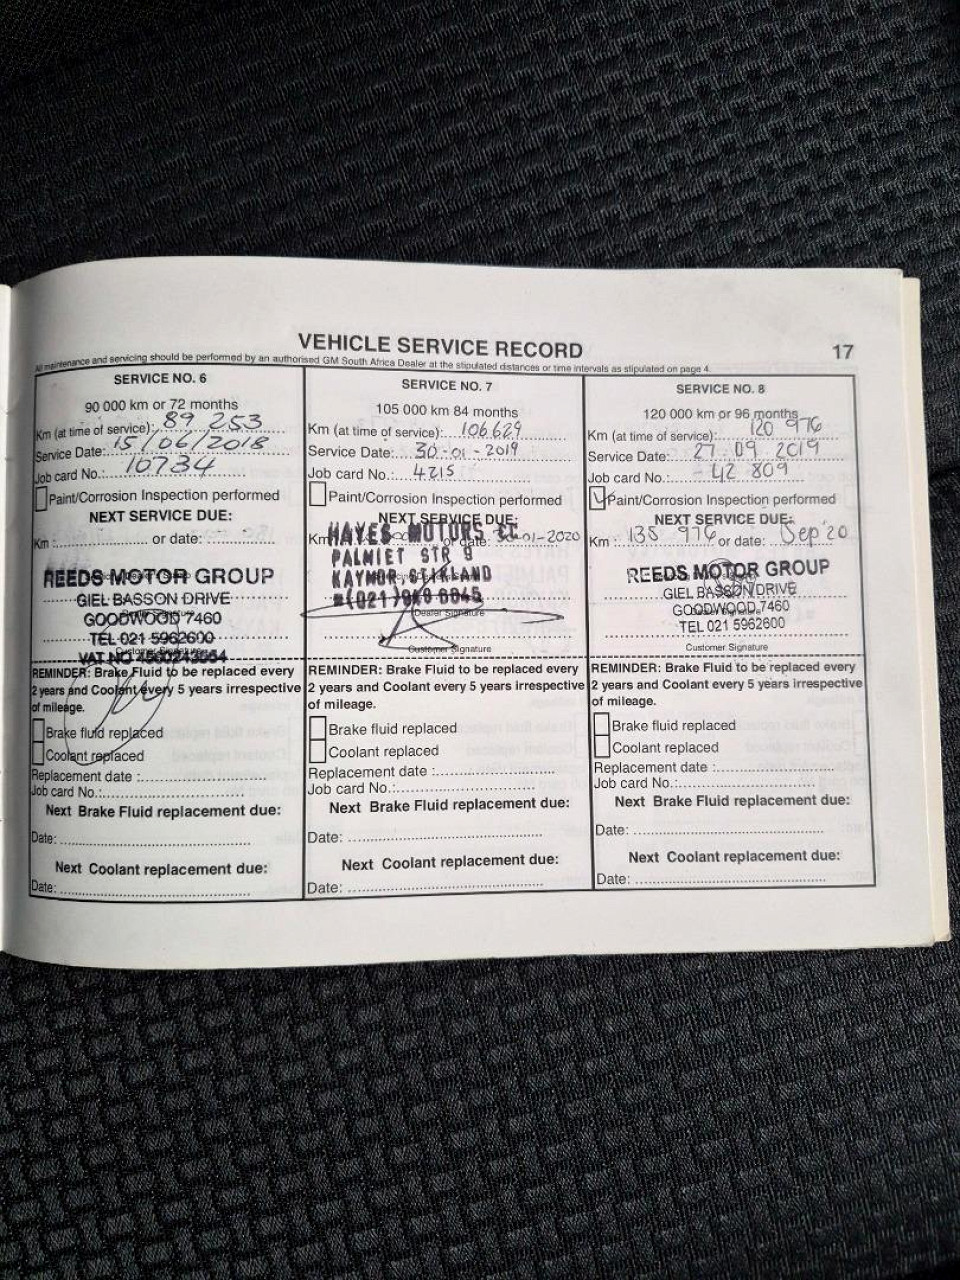 VEHICLE SERVICE RECORD
17
All maintenance and servicing should be performed by an authorised GM South Africa Dealer at the stipulated distances or time intervals as stipulated on page 4.
SERVICE NO. 6
90 000 km or 72 months
Km (at time of service): 89 253
Service Date: 15/06/2018
Job card No.: 10734
Paint/Corrosion Inspection performed
NEXT SERVICE DUE:
Km : or date:
REEDS MOTOR GROUP
GIEL BASSON DRIVE
GOODWOOD 7460
TEL 021 5962600
Customer Signature
VAT NO 4560243554
REMINDER: Brake Fluid to be replaced every
2 years and Coolant every 5 years irrespective
of mileage.
Brake fluid replaced
Coolant replaced
Replacement date :
Job card No.:
Next Brake Fluid replacement due:
Date:
Next Coolant replacement due:
Date:
SERVICE NO. 7
105 000 km 84 months
Km (at time of service): 106629
Service Date: 30-01-2019
Job card No.: 4215
Paint/Corrosion Inspection performed
NEXT SERVICE DUE:
Km or date: 30-01-2020
HAYES MOTORS CC
PALMIET STR 9
KAYMOR STIKLAND
Dealer Signature
Customer Signature
REMINDER: Brake Fluid to be replaced every
2 years and Coolant every 5 years irrespective
of mileage.
Brake fluid replaced
Coolant replaced
Replacement date :
Job card No.:
Next Brake Fluid replacement due:
Date:
Next Coolant replacement due:
Date:
SERVICE NO. 8
120 000 km or 96 months
Km (at time of service): 120 976
Service Date: 27 09 2019
Job card No.: 42 809
Paint/Corrosion Inspection performed
NEXT SERVICE DUE:
Km : 135 976 or date: Sep '20
REEDS MOTOR GROUP
GIEL BASSON DRIVE
GOODWOOD 7460
TEL 021 5962600
Customer Signature
REMINDER: Brake Fluid to be replaced every
2 years and Coolant every 5 years irrespective
of mileage.
Brake fluid replaced
Coolant replaced
Replacement date :
Job card No.:
Next Brake Fluid replacement due:
Date:
Next Coolant replacement due:
Date: